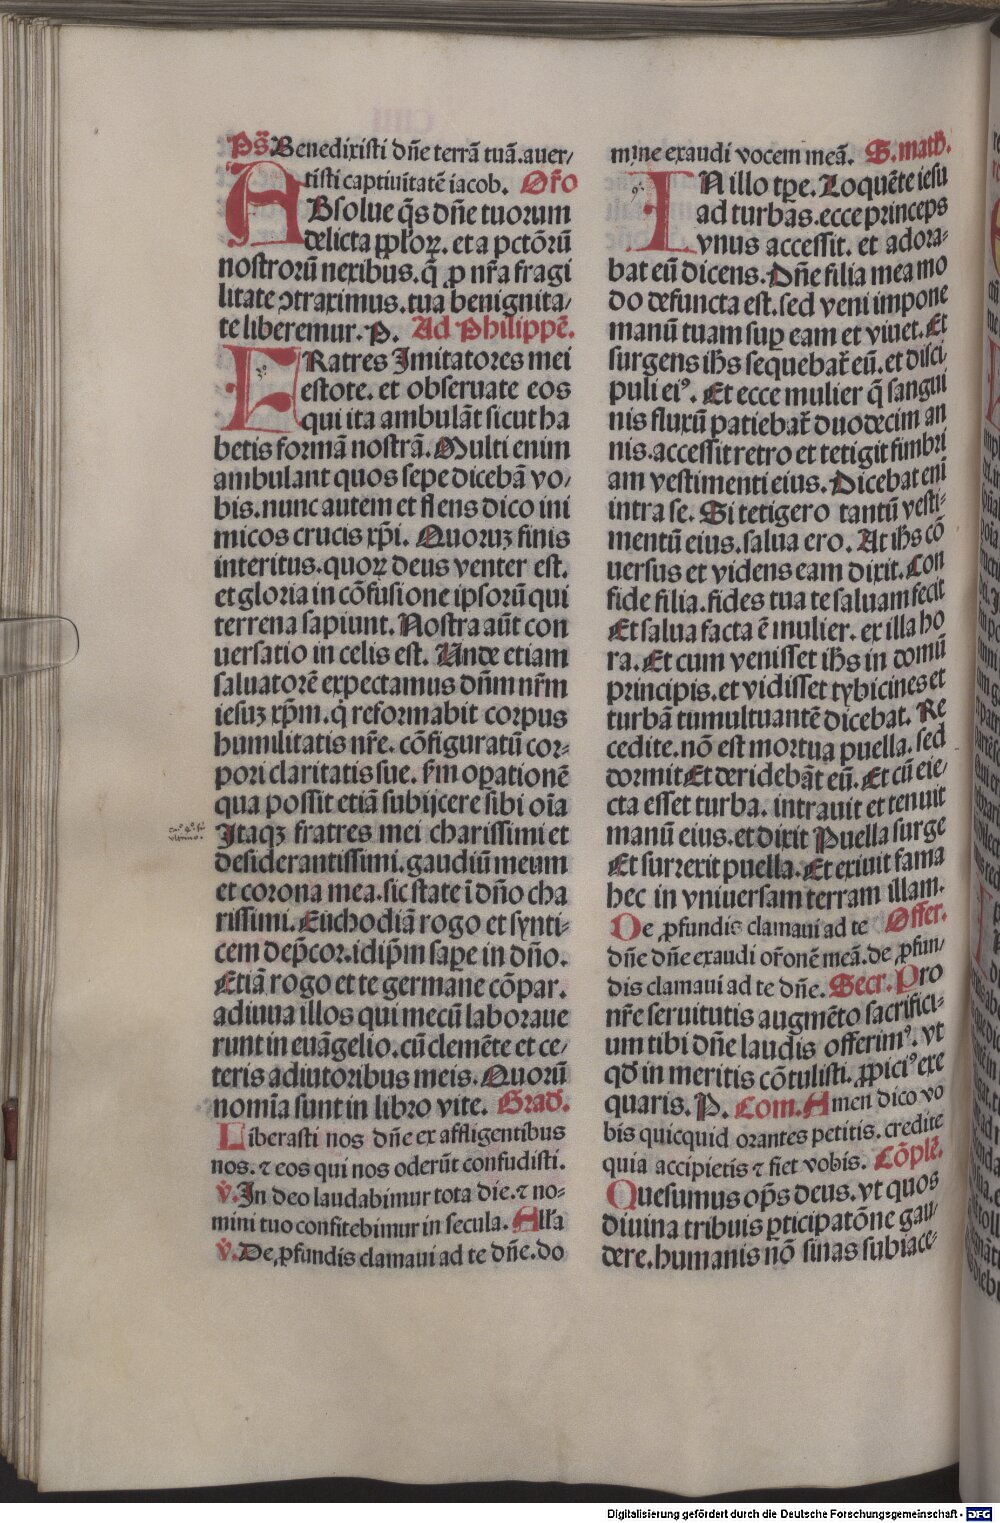 Ps̄. Benedixisti dn̄e terrā tuā. auer/
tisti captiuitatē iacob. Or̄o
ABsolue q̄s dn̄e tuorum
delicta ꝓpl̓oꝝ. et a pctōrū
nostrorū nexibus. q̄ ꝓ nr̄a fragi
litate ↄtraximus. tua benignita/
te liberemur. P. Ad Philippē.
FRatres Imitatores mei
estote. et obseruate eos
qui ita ambulāt sicut ha
betis formā nostrā. Multi enim
ambulant quos sepe dicebā vo/
bis. nunc autem et flens dico ini
micos crucis xp̄i. Quoruꝫ finis
interitus. quoꝝ deus venter est.
et gloria in cōfusione ipsorū qui
terrena sapiunt. Nostra aūt con
uersatio in celis est. Unde etiam
saluatorē expectamus dn̄m nr̄m
iesuꝫ xp̄m. q̇ reformabit corpus
humilitatis nr̄e. cōfiguratū cor-
pori claritatis sue. ẜm oꝑationē
qua possit etiā subijcere sibi oīa
Itaqꝫ fratres mei charissimi et
desiderantissimi. gaudiū meum
et corona mea. sic state ī dn̄o cha
rissimi. Euchodiā rogo et synti-
cem dep̄cor. idip̄m saꝑe in dn̄o.
Etiā rogo et te germane cōpar.
adiuua illos qui mecū laboraue
runt in euāgelio. cū clemēte et ce/
teris adiutoribus meis. Quorū
nomīa sunt in libro vite. Grad̓.
Liberasti nos dn̄e ex affligentibus
nos. ⁊ eos qui nos oderūt confudisti.
℣. In deo laudabimur tota die. ⁊ no-
mini tuo confitebimur in secula. All̓a
℣. De ꝓfundis clamaui ad te dn̄e. do
mine exaudi vocem meā. S. math̓.
IN illo tꝑe. Loquēte iesu
ad turbas. ecce princeps
vnus accessit. et adora-
bat eū dicens. Dn̄e filia mea mo
do defuncta est. sed veni impone
manū tuam suꝑ eam et viuet. Et
surgens ih̄s sequebat̄ eū. et disci
puli eiꝰ. Et ecce mulier q̄ sangui
nis fluxū patiebat̄ duodecim an
nis. accessit retro et tetigit fimbri
am vestimenti eius. Dicebat eni
intra se. Si tetigero tantū vesti-
mentū eius. salua ero. At ih̄s cō
uersus et videns eam dixit. Con
fide filia. fides tua te saluam fecit
Et salua facta ē mulier. ex illa ho
ra. Et cum venisset ih̄s in domū
principis. et vidisset tybicines et
turbā tumultuantē dicebat. Re
cedite. nō est mortua puella. sed
dormit Et deridebāt eū. Et cū eie/
cta esset turba. intrauit et tenuit
manū eius. et dixit Puella surge
Et surrexit puella. Et exiuit fama
hec in vniuersam terram illam.
De ꝓfundis clamaui ad te Offer.
dn̄e dn̄e exaudi or̄onē meā. de ꝓfun/
dis clamaui ad te dn̄e. Secr. Pro
nr̄e seruitutis augmēto sacrifici-
um tibi dn̄e laudis offerimꝰ. vt
qd̓ in meritis cōtulisti. ꝓpiciꝰ exe
quaris. P. Com. Amen dico vo
bis quicquid orantes petitis. credite
quia accipietis ⁊ fiet vobis. Cōplē.
Quesumus op̄s deus. vt quos
diuina tribuis ꝑticipatōne gau/
dere. humanis nō sinas subiace-
Digitalisierung gefördert durch die Deutsche Forschungsgemeinschaft - DFG